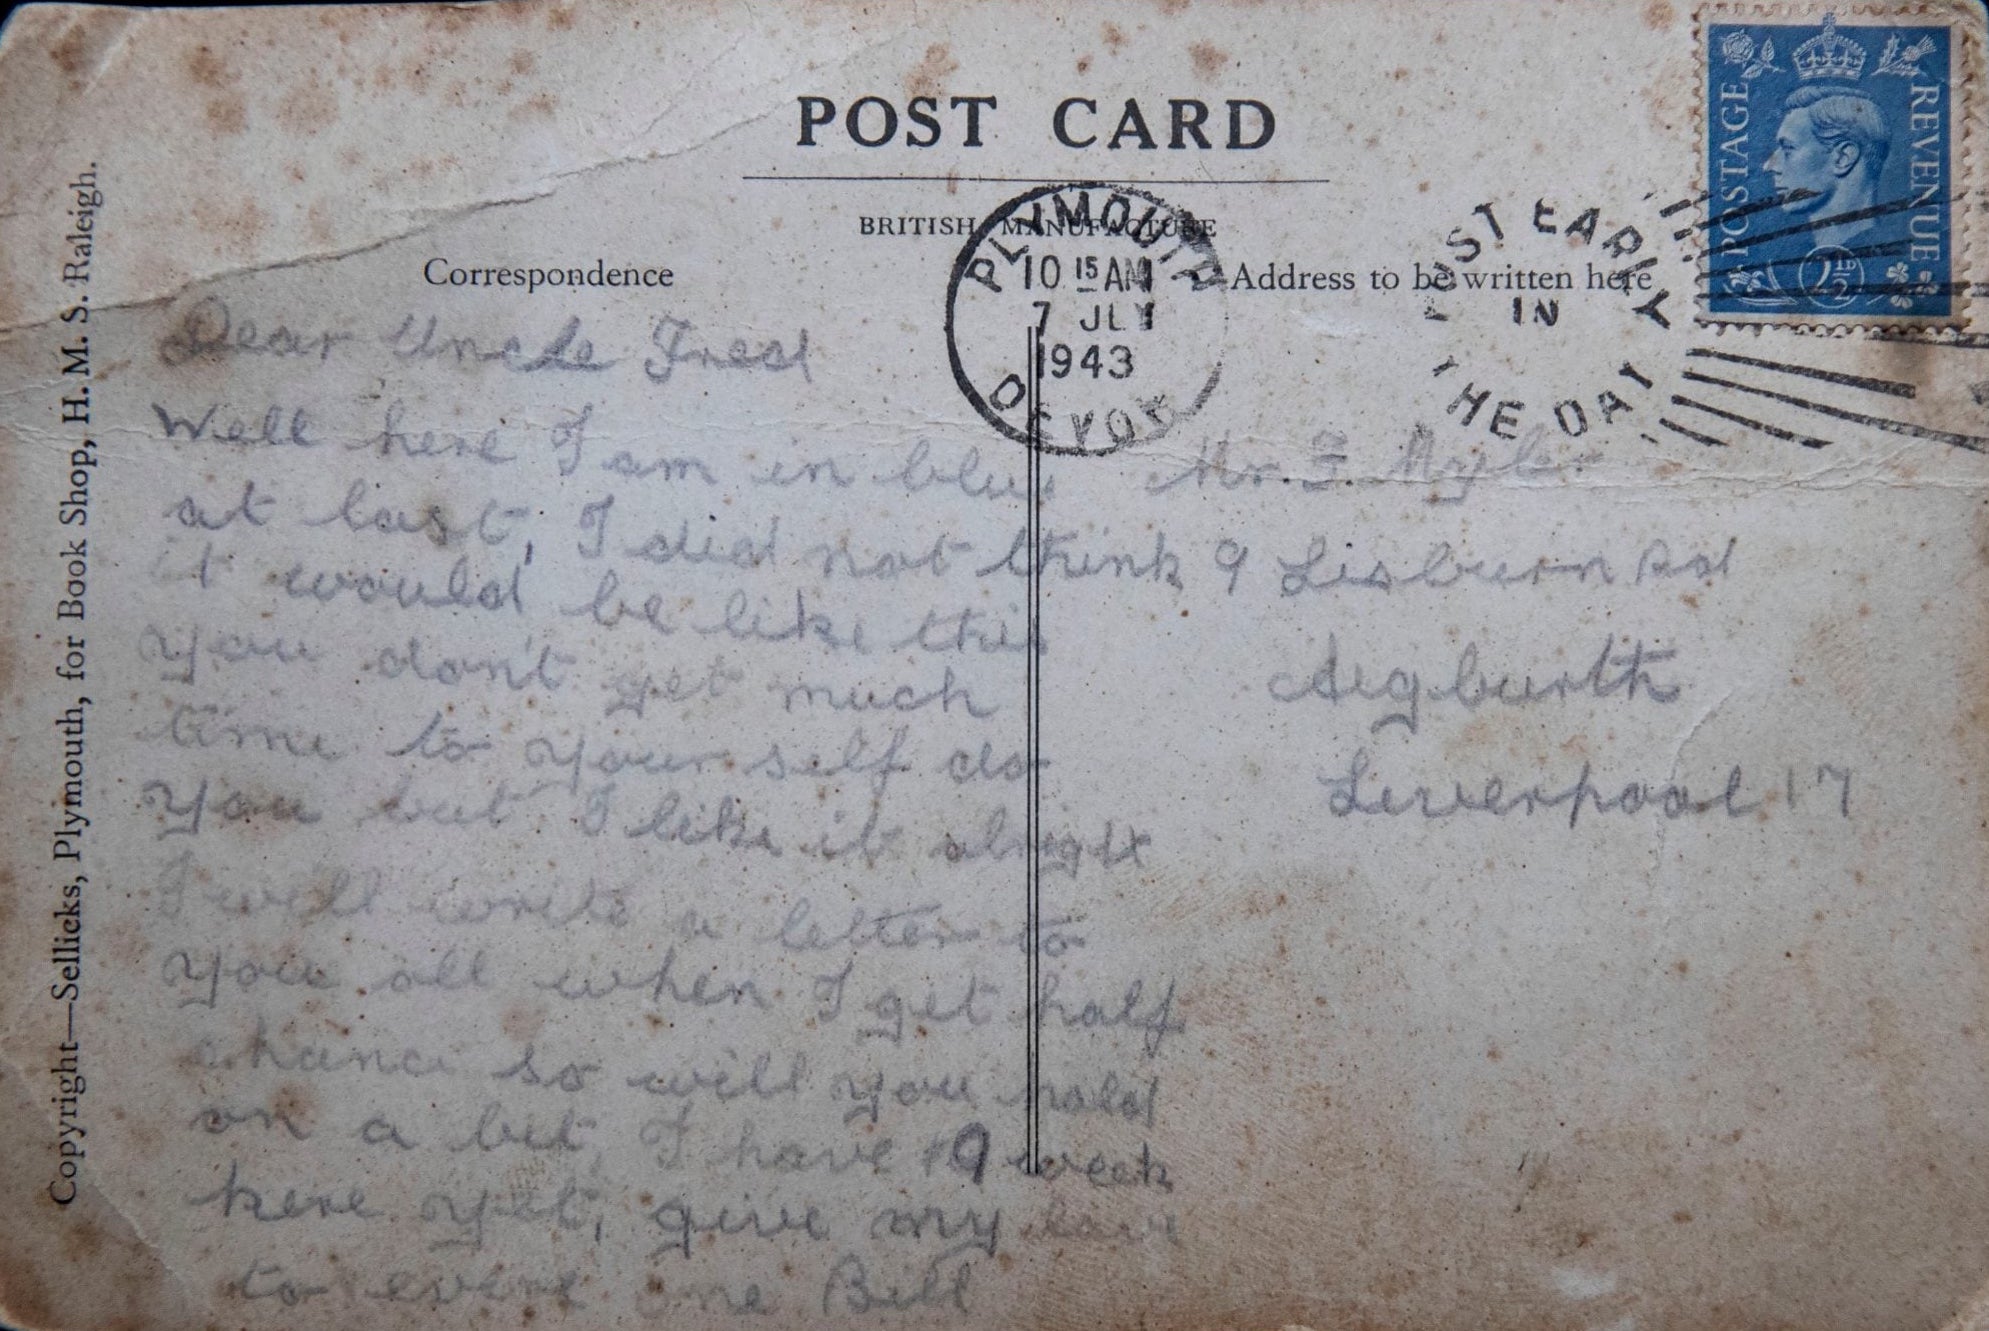 POST CARD
BRITISH MANUFACTURE
Correspondence
Address to be written here
PLYMOUTH
10 15 AM
7 JLY
1943
DEVON
POST EARLY
IN
THE DAY
POSTAGE
REVENUE
2½D
Copyright—Sellicks, Plymouth, for Book Shop, H.M.S. Raleigh.
Dear Uncle Fred
Well here I am in blue
at last, I did not think
it would be like this
you don't get much
time to your self do
you but I like it alright
I will write a letter to
you all when I get half
chance so will you hold
on a bit, I have 9 week
here yet, give my love
to every one Bill
Mr. F.
9 Lisburn Rd
Aigburth
Liverpool 17